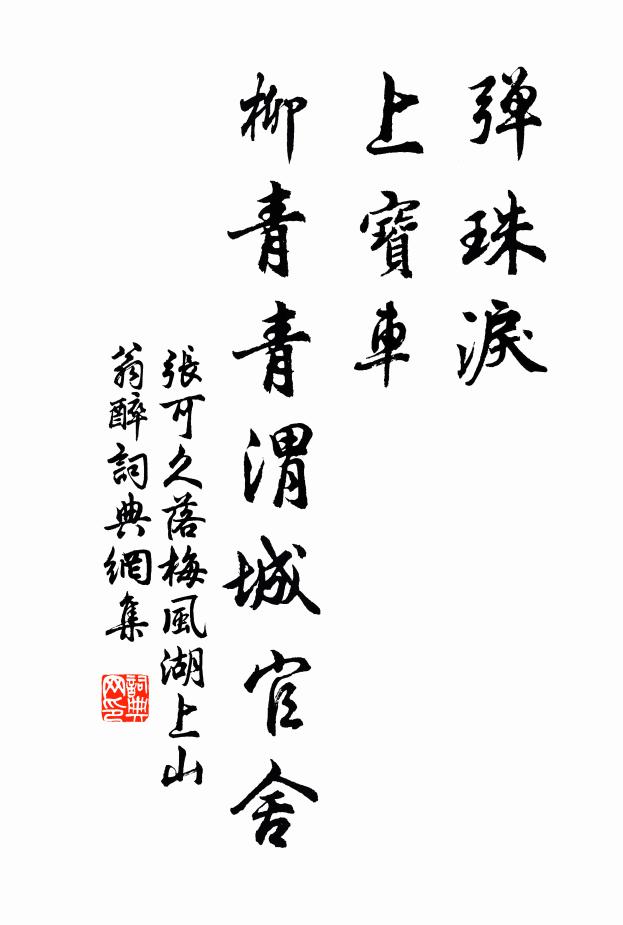 弹珠淚
上寶車
柳青青渭城官舍
張可久落梅風湖上山
翁醉詞典網集
詞典
网印